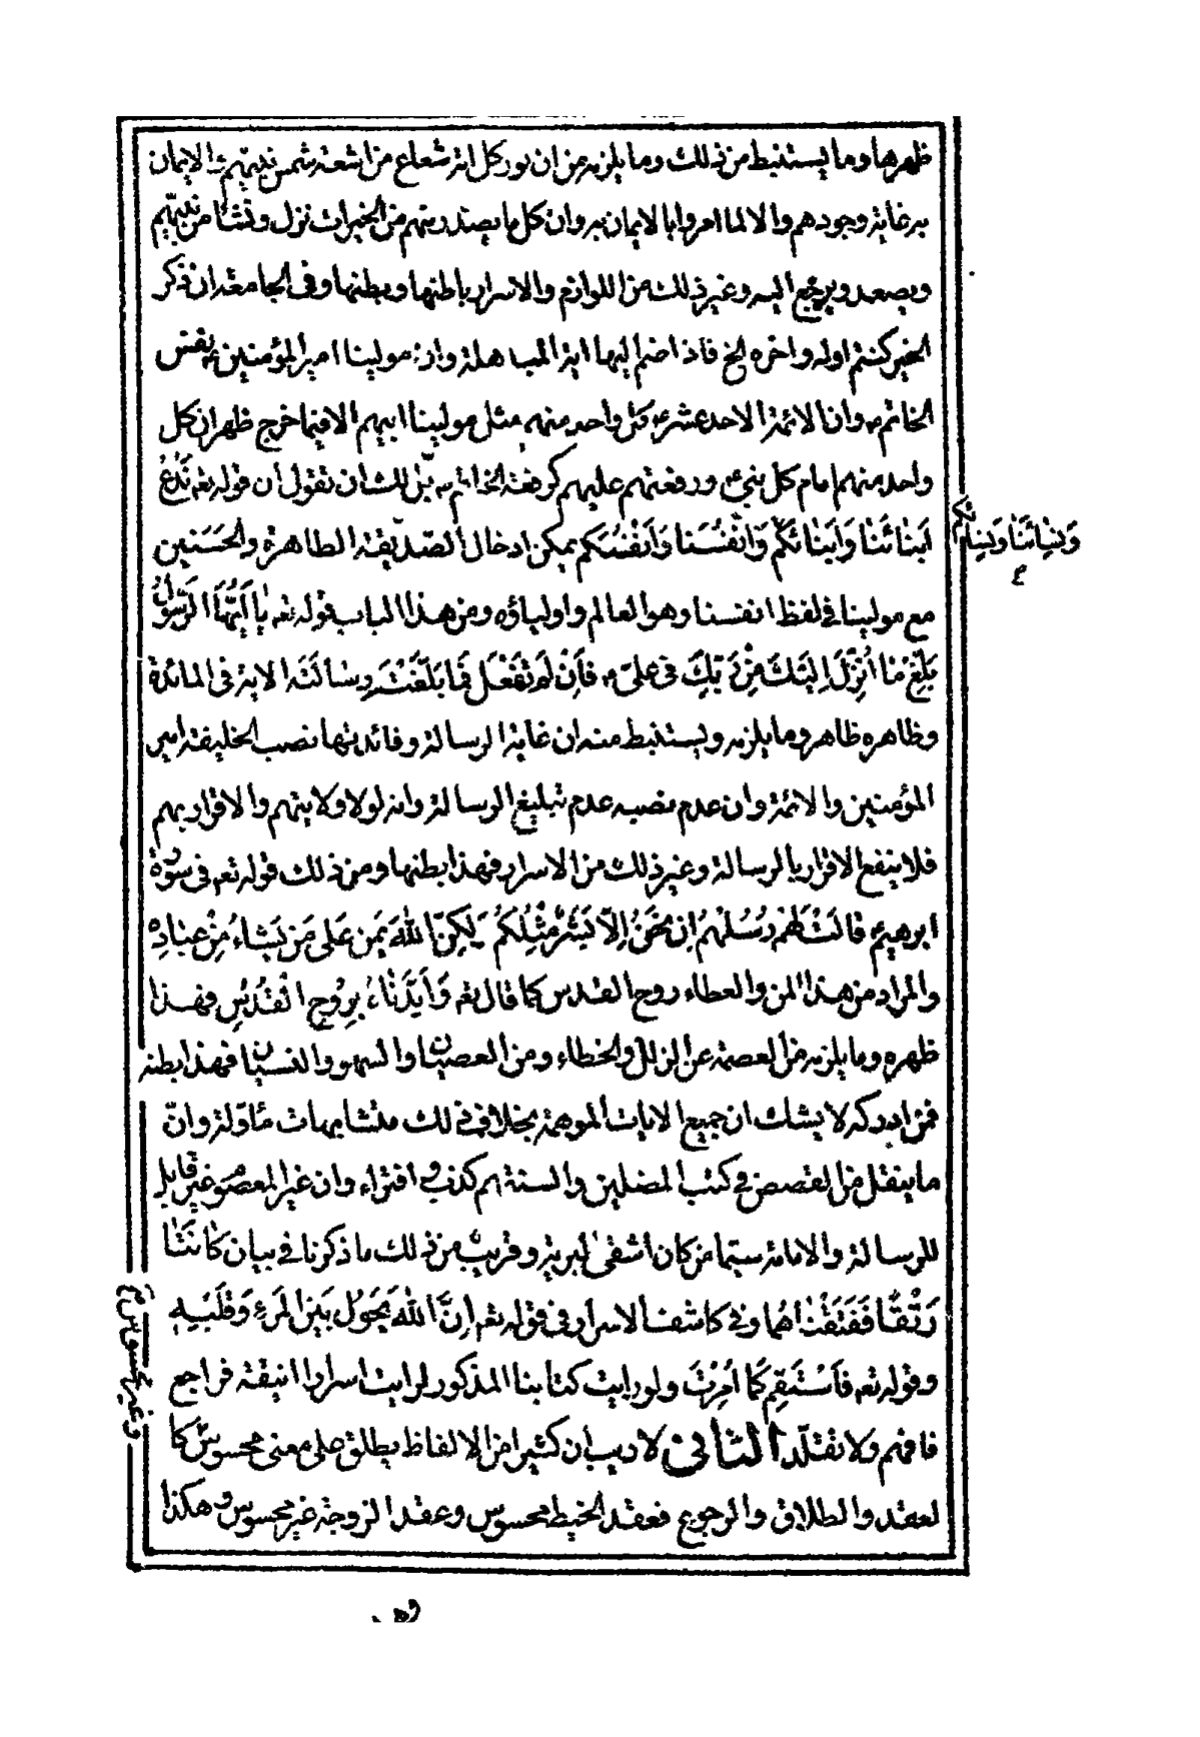 ظهرها وما يستنبط من ذلك وما يلزمه من ان نور كل اثر شعاع من اشعة شمس نبيهم والايمان
به غاية وجودهم والا لما امروا بالايمان به وان كل ما يصدر منهم من الخيرات نزل ونشأ من نبيهم
ويصعد ويرجع اليه وغير ذلك من اللوازم والاسرار باطنها وبطنها وفى الجامعة ان ذكر
الخير كنتم اوله واخره الخ فاذا ضم اليها اية المباهلة وان مولينا امير المؤمنين ع نفس
الخاتم ص وان الائمة الاحد عشر ع كل واحد منهم مثل مولينا ابيهم الا فيما خرج ظهر ان كل
واحد منهم امام كل نبى ع ورفعتهم عليهم كرفعة الخاتم ص بل لك ان تقول ان قوله تعه نَدْعُ
اَبْنٰائَنٰا وَاَبْنٰائَكُمْ وَاَنْفُسَنا وَاَنْفُسَكم يمكن ادخال الصّديقة الطاهرة والحَسَنين
وَنِسٰائَنٰا وَنِسٰائَكُم
مع مولينا فى لفظ انفسنا وهو العالم واولياؤه ومن هذا الباب قوله تعه يٰا اَيُّهَا الرَّسُولُ
بَلِّغْ مٰا اُنْزِلَ اِلَيْكَ مِنْ رَبِّكَ فى علىّ ع فَاِنْ لَمْ تَفْعَلْ فَمٰا بَلَّغْتَ رِسٰالَتَهُ الاية فى المائدة
وظاهره ظاهر وما يلزمه ويستنبط منه ان غاية الرسالة وفائدتها نصب الخليفة امير
المؤمنين والائمة وان عدم نصبه عدم تبليغ الرسالة وانه لولا ولايتهم والاقرار بهم
فلا ينفع الاقرار بالرسالة وغير ذلك من الاسرار فهذا بطنها ومن ذلك قوله تعه فى سورة
ابرهيم قٰالَتْ لَهُمْ رُسُلُهُمْ اِنْ نَحْنُ اِلّٰا بَشَرٌ مِثْلُكُمْ وَلٰكِنَّ اللهَ يَمُنُّ عَلٰى مَنْ يَشٰاءُ مِنْ عِبٰادِهِ
والمراد من هذا المن والعطاء روح القدس كما قال تعه وَاَيَّدْنٰاهُ بِرُوحِ الْقُدُسِ فهذا
ظهره وما يلزمه من العصمة عن الزلل والخطاء ومن العصيان والسهو والنسيان فهذا بطنه
فمن ادركه لا يشك ان جميع الايات الموهمة بخلاف ذلك متشابهات مأوّلة وانّ
ما ينقل من القصص فى كتب المضلين والسنتهم كذب وافتراء وان غير المعصوم غير قابل
للرسالة والامامة سيّما من كان اشقى البرية وقريب من ذلك ما ذكرنا فى بيان كٰانَتٰا
رَتْقًا فَفَتَقْنٰاهُما وفى كاشف الاسرار فى قوله تعه اِنَّ اللهَ يَحُولُ بَيْنَ الْمَرْءِ وَقَلْبِهِ
وقوله تعه فَاسْتَقِمْ كَمٰا اُمِرْتَ ولو رايت كتابنا المذكور لرايت اسرارا انيقة فراجع
فافهم ولا تقلّد الثانى لا ريب ان كثيرا من الالفاظ يطلق على معنى محسوس كا
وغير محسوس
لعقد والطلاق والرجوع فعقد الخيط محسوس وعقد الزوجة غير محسوس وهكذا